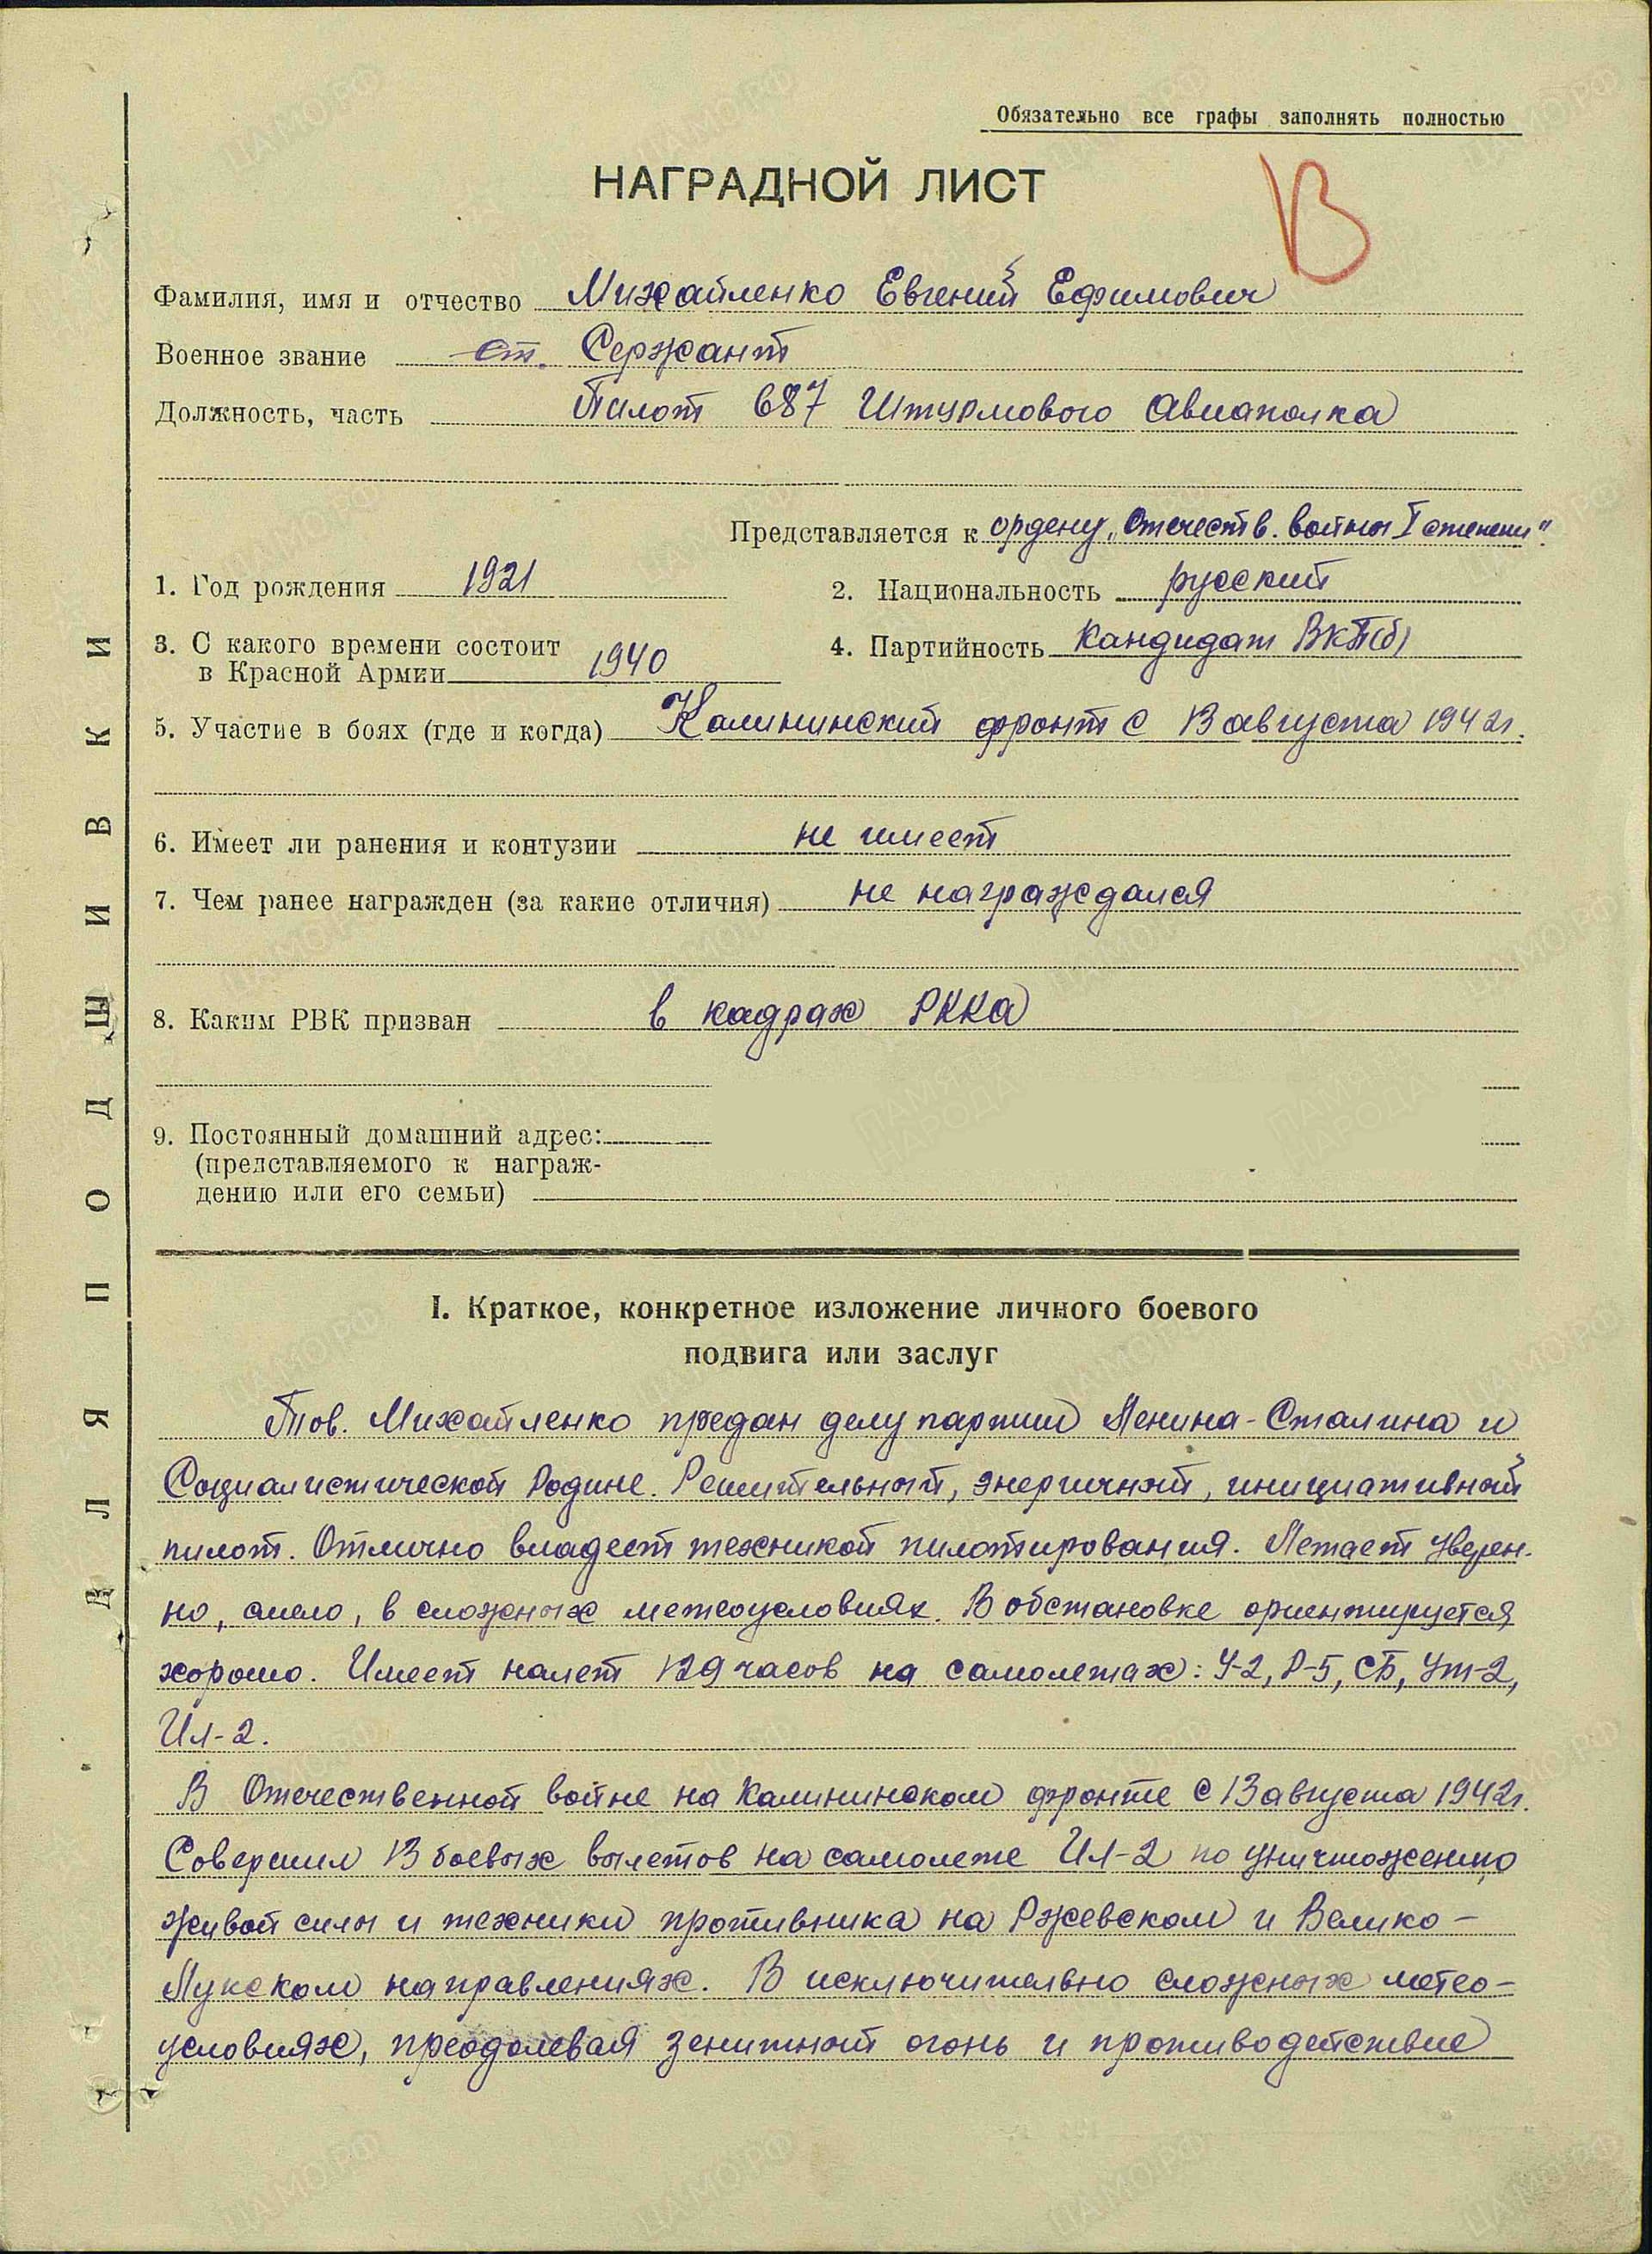 Обязательно все графы заполнять полностью
НАГРАДНОЙ ЛИСТ
В
Фамилия, имя и отчество Михайленко Евгений Ефимович
Военное звание ст. Сержант
Должность, часть Пилот 687 Штурмового Авиаполка
Представляется к ордену „Отечеств. войны I степени".
1. Год рождения 1921
2. Национальность русский
3. С какого времени состоит
в Красной Армии 1940
4. Партийность Кандидат ВКП(б)
5. Участие в боях (где и когда) Калининский фронт с 13 августа 1942г.
6. Имеет ли ранения и контузии не имеет
7. Чем ранее награжден (за какие отличия) не награждался
8. Каким РВК призван в кадрах РККА
9. Постоянный домашний адрес:
(представляемого к награж-
дению или его семьи)
I. Краткое, конкретное изложение личного боевого
подвига или заслуг
Тов. Михайленко предан делу партии Ленина-Сталина и
Социалистической Родине. Решительный, энергичный, инициативный
пилот. Отлично владеет техникой пилотирования. Летает уверен-
но, смело, в сложных метеоусловиях. В обстановке ориентируется
хорошо. Имеет налет 129 часов на самолетах: У-2, Р-5, СБ, Ут-2,
Ил-2.
В Отечественной войне на Калининском фронте с 13 августа 1942г.
Совершил 13 боевых вылетов на самолете Ил-2 по уничтожению
живой силы и техники противника на Ржевском и Велико-
Лукском направлениях. В исключительно сложных метео-
условиях, преодолевая зенитный огонь и противодействие
ДЛЯ ПОДШИВКИ
ЦАМО.РФ
ПАМЯТЬ НАРОДА